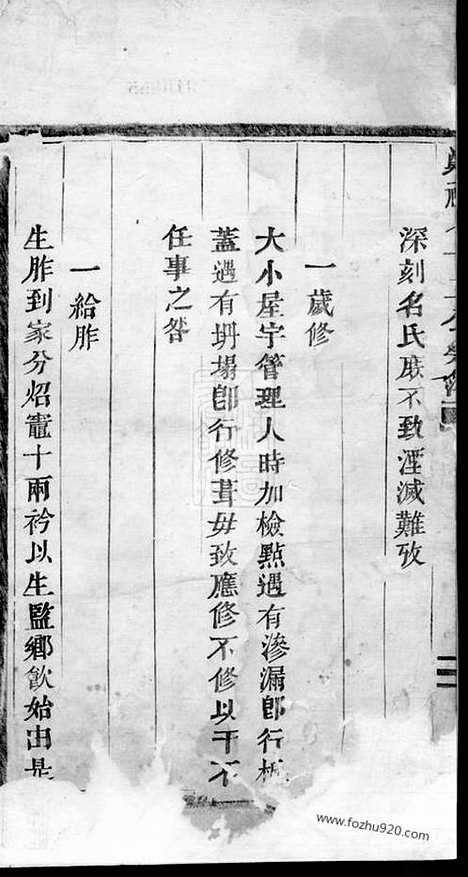 深刻名氏庶不致湮滅難攷
一歲修
大小屋宇管理人時加檢點遇有滲漏卽行
蓋遇有坍塌卽行修葺毋致應修不修以干不
任事之咎
一給胙
生胙到家分炤竈十兩衿以生監鄉飮始出是
www.fozhu920.com